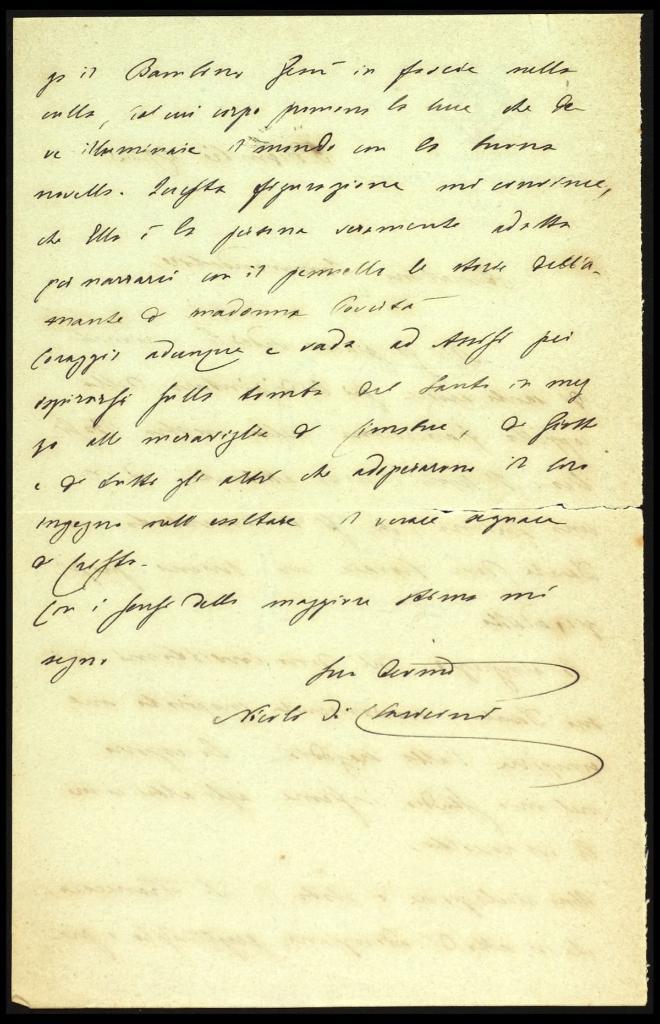 go il Bambino Gesù in fascie nella
culla, dal cui corpo promana la luce che de
ve illuminare il mondo con la buona
novella. Questa figurazione mi convince,
che Ella è la persona veramente adatta
per narrarci con il pennello le storie dell'a-
mante di madonna Povertà
Coraggio adunque e vada ad Assisi per
ispirarsi sulla tomba del Santo in mez
zo alle meraviglie di Cimabue, di Giotto
e di tutti gli altri che adoperarono il loro
ingegno nell'esaltare il verace seguace
di Cristo.
Con i sensi della maggiore stima mi
segno
Suo Devmo
Nicolò di